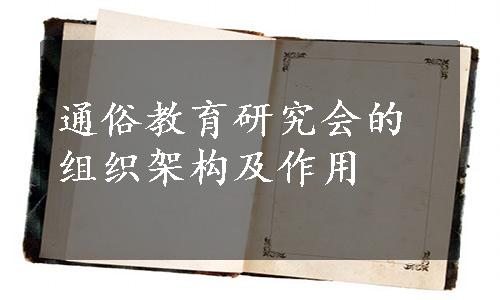 通俗教育研究会的
组织架构及作用